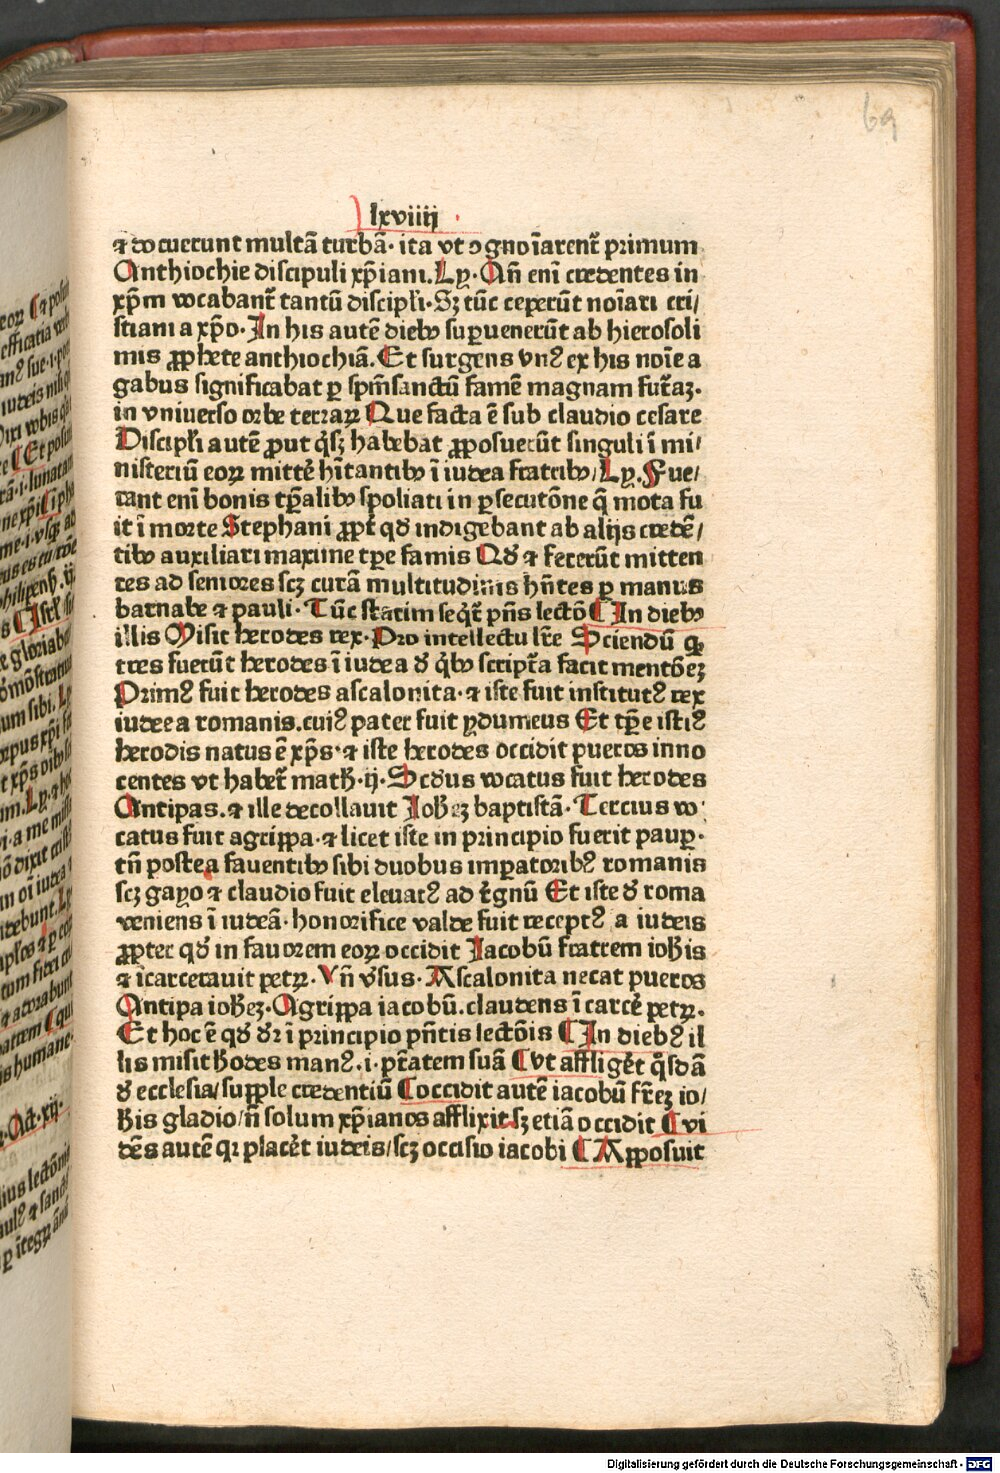 69
lxviiij
⁊ docuerunt multā turbā· ita vt ꝯgnoīarent᷑ primum
Anthiochie discipuli xp̄iani. Ly· Añ enī credentes in
xp̄m vocabant᷑ tantū discipl̄i· Sꝫ tūc ceperūt noīari cri/
stiani a xp̄o· In his autē diebꝰ suꝑuenerūt ab hierosoli
mis ꝓphete anthiochiā. Et surgens vnꝰ ex his noīe a
gabus significabat ꝑ sp̄m sanctū famē magnam futꝝaꝫ·
in vniuerso orbe terraꝝ Que facta ē sub claudio cesare
Discipl̄i autē ꝓut q̇sꝫ habebat ꝓposuerūt singuli ī mi/
nisteriū eoꝝ mitte᷑ hītantibꝰ ī iudea fratribꝰ/ Ly. Fue/
rant enī bonis tꝑalibꝰ spoliati in ꝑsecutōne q̄ mota fu
it ī morte Stephani ꝓpt᷑ qd̛ indigebant ab alijs credē/
tibꝰ auxiliari maxime tꝑe famis Qd̛ ⁊ fecerūt mitten
tes ad seniores scꝫ curā multitudinis hñtes ꝑ manus
barnabe ⁊ pauli· Tūc statim seq̇t᷑ p̄ns lectō ¶ In diebꝰ
illis Misit herodes rex· Pro intellectu lr̄e Sciendū ꝙ
tres fuerūt herodes ī iudea d̛ q̇bꝰ script᷑a facit mentōeꝫ
Primꝰ fuit herodes ascalonita· ⁊ iste fuit institutꝰ rex
iudee a romanis. cuiꝰ pater fuit ydumeus Et tꝑe istiꝰ
herodis natus ē xp̄s· ⁊ iste herodes occidit pueros inno
centes vt habet᷑ math̄· ij· Scd̛us vocatus fuit herodes
Antipas. ⁊ ille decollauit Ioh̄eꝫ baptistā· Tercius vo
catus fuit agrippa· ⁊ licet iste in principio fuerit pauꝑ·
tñ postea fauentibꝰ sibi duobus imꝑatoribꝰ romanis
scꝫ gayo ⁊ claudio fuit eleuatꝰ ad r᷑gnū Et iste d̛ roma
veniens ī iudeā· honorifice valde fuit receptꝰ a iudeis
ꝓpter qd̛ in fauorem eoꝝ occidit Jacobū fratrem ioh̄is
⁊ īcarcerauit petꝝ· Vñ v᷑sus· Ascalonita necat pueros
Antipa ioh̄eꝫ· Agrippa iacobū. claudens ī carce᷑ petꝝ·
Et hoc ē qd̛ d̛r ī principio pn̄tis lectōis ¶ In diebꝰ il
lis misit h̄odes manꝰ. i· pt᷑atem suā ¶ Vt affliget᷑ q̇sdā
d̛ ecclesia/ supple credentiū ¶ occidit autē iacobū fr̄eꝫ io/
h̄is gladio/ ñ solum xp̄ianos afflixit sꝫ etiā occidit ¶ Vi
dēs autē qꝛ place᷑t iudeis/ scꝫ occisio iacobi ¶ Apposuit
Digitalisierung gefördert durch die Deutsche Forschungsgemeinschaft - DFG